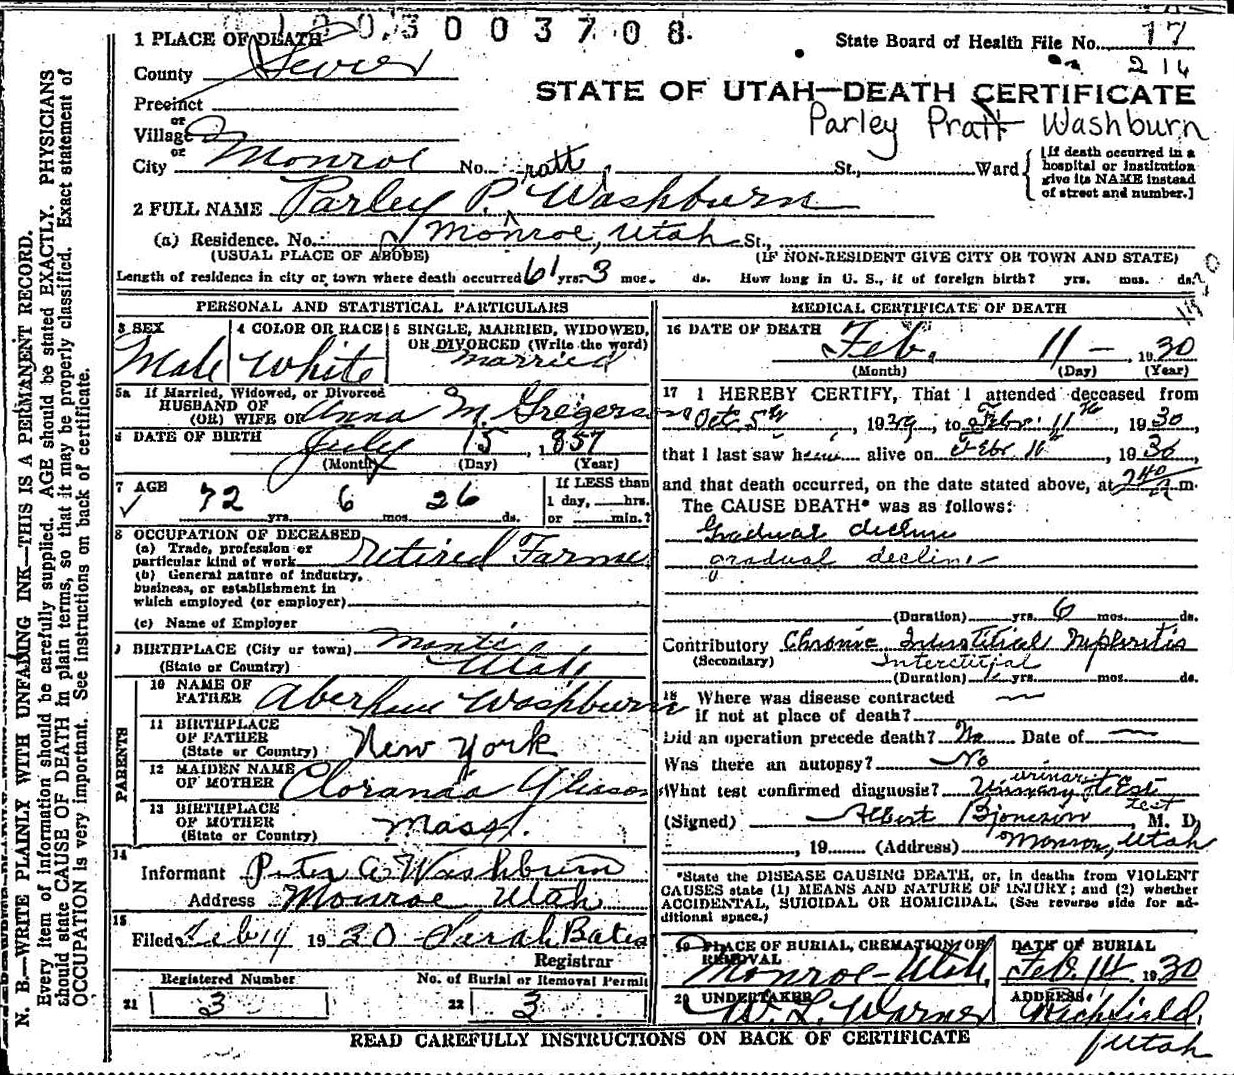 3003708
1 PLACE OF DEATH
State Board of Health File No. 17
County Sevier
216
STATE OF UTAH—DEATH CERTIFICATE
Precinct
or
Village
Parley Pratt Washburn
or
City Monroe No. St., Ward
[If death occurred in a hospital or institution give its NAME instead of street and number.]
ratt
2 FULL NAME Parley P. Washburn
(a) Residence. No. Monroe, Utah St.,
(USUAL PLACE OF ABODE) (IF NON-RESIDENT GIVE CITY OR TOWN AND STATE)
Length of residence in city or town where death occurred 61 yrs. 3 mos. ds. How long in U. S., if of foreign birth? yrs. mos. ds.
PERSONAL AND STATISTICAL PARTICULARS
3 SEX Male
4 COLOR OR RACE White
5 SINGLE, MARRIED, WIDOWED, OR DIVORCED (Write the word)
married
5a If Married, Widowed, or Divorced
HUSBAND OF
(OR) WIFE OF Anna M. Gregerson
6 DATE OF BIRTH July 15, 1857
(Month) (Day) (Year)
7 AGE 72 yrs. 6 mos. 26 ds.
If LESS than
1 day, hrs.
or min.?
8 OCCUPATION OF DECEASED
(a) Trade, profession or
particular kind of work Retired Farmer
(b) General nature of industry,
business, or establishment in
which employed (or employer)
(c) Name of Employer
9 BIRTHPLACE (City or town) Manti
(State or Country) Utah
PARENTS
10 NAME OF
FATHER Aberham Washburn
11 BIRTHPLACE
OF FATHER
(State or Country) New York
12 MAIDEN NAME
OF MOTHER Gleason
13 BIRTHPLACE
OF MOTHER
(State or Country) Mass.
14
Informant Peter A. Washburn
Address Monroe Utah
15
Filed Feb 14 1930 Sarah Bates
Registrar
Registered Number No. of Burial or Removal Permit
21 3 22 3
MEDICAL CERTIFICATE OF DEATH
16 DATE OF DEATH Feb. 11 – 1930
(Month) (Day) (Year)
17 I HEREBY CERTIFY, That I attended deceased from
Oct 5th, 1929, to Febr. 11th, 1930,
that I last saw alive on Febr , 1930,
and that death occurred, on the date stated above, at 240 m.
The CAUSE DEATH* was as follows:
Gradual decline
gradual decline
(Duration) yrs. 6 mos. ds.
Contributory Chronic Interstitial Nephritis
(Secondary) Interstitial
(Duration) yrs. mos. ds.
18 Where was disease contracted
if not at place of death?
Did an operation precede death? No Date of
Was there an autopsy? No
urinary
What test confirmed diagnosis? Urinary test
test
(Signed) Albert , M. D.
, 19 (Address) Monroe, Utah
*State the DISEASE CAUSING DEATH, or, in deaths from VIOLENT
CAUSES state (1) MEANS AND NATURE OF INJURY; and (2) whether
ACCIDENTAL, SUICIDAL OR HOMICIDAL. (See reverse side for ad-
ditional space.)
19 PLACE OF BURIAL, CREMATION, OR
REMOVAL
Monroe – Utah.
DATE OF BURIAL
Feb. 14 1930
20 UNDERTAKER
W. L. Warner
ADDRESS
Richfield,
Utah
READ CAREFULLY INSTRUCTIONS ON BACK OF CERTIFICATE
N. B.—WRITE PLAINLY WITH UNFADING INK—THIS IS A PERMANENT RECORD.
Every item of information should be carefully supplied. AGE should be stated EXACTLY. PHYSICIANS
should state CAUSE OF DEATH in plain terms, so that it may be properly classified. Exact statement of
OCCUPATION is very important. See instructions on back of certificate.